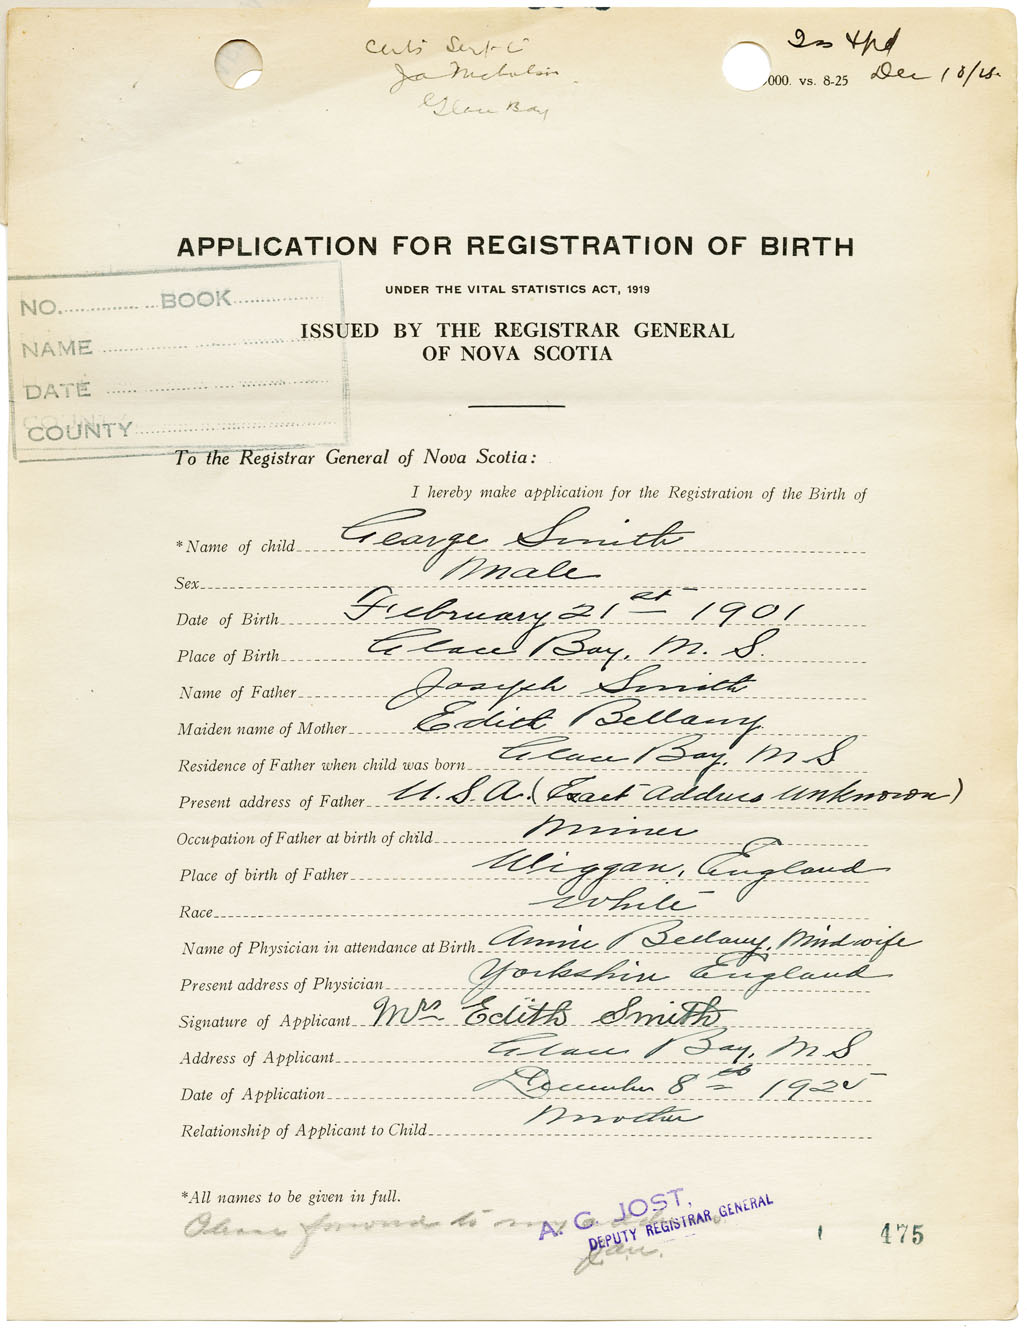 Certi Sent to
Jo Nicholson
Glace Bay
000. vs. 8-25
Dec 18/25
APPLICATION FOR REGISTRATION OF BIRTH
UNDER THE VITAL STATISTICS ACT, 1919
ISSUED BY THE REGISTRAR GENERAL
OF NOVA SCOTIA
NO. BOOK
NAME
DATE
COUNTY
To the Registrar General of Nova Scotia:
I hereby make application for the Registration of the Birth of
*Name of child George Smith
Sex Male
Date of Birth February 21st 1901
Place of Birth Glace Bay, N. S.
Name of Father Joseph Smith
Maiden name of Mother Edith Bellamy
Residence of Father when child was born Glace Bay, N S
Present address of Father U. S. A. (Exact address unknown)
Occupation of Father at birth of child Miner
Place of birth of Father Wiggan, England
Race White
Name of Physician in attendance at Birth Annie Bellamy, Midwife
Present address of Physician Yorkshire England
Signature of Applicant Mrs Edith Smith
Address of Applicant Glace Bay, N S
Date of Application December 8th 1925
Relationship of Applicant to Child Mother
*All names to be given in full.
Please forward to my address.
A. C. JOST,
DEPUTY REGISTRAR GENERAL
475